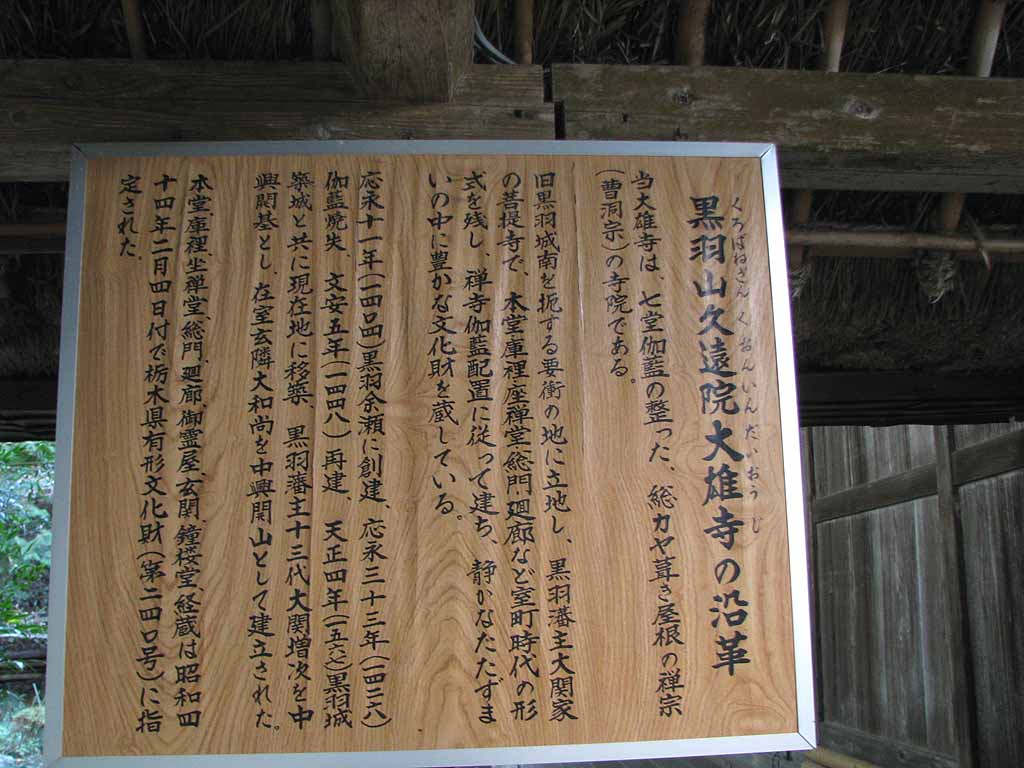 くろばねざんくおんいんだいおうじ
黒羽山久遠院大雄寺の沿革
当大雄寺は、七堂伽藍の整った、総カヤ葺き屋根の禅宗
(曹洞宗)の寺院である。
旧黒羽城南を扼する要衝の地に立地し、黒羽藩主大関家
の菩提寺で、本堂庫裡座禅堂総門廻廊など室町時代の形
式を残し、禅寺伽藍配置に従って建ち、静かなたたずま
いの中に豊かな文化財を蔵している。
応永十一年(一四〇四)黒羽余瀬に創建、応永三十三年(一四二六)
伽藍焼失、文安五年(一四四八)再建、天正四年(一五七六)黒羽城
築城と共に現在地に移築、黒羽藩主十三代大関増次を中
興開基とし、在室玄隣大和尚を中興開山として建立された。
本堂、庫裡、坐禅堂、総門、廻廊、御霊屋、玄関、鐘楼堂、経蔵は昭和四
十四年二月四日付で栃木県有形文化財(第二四〇号)に指
定された。